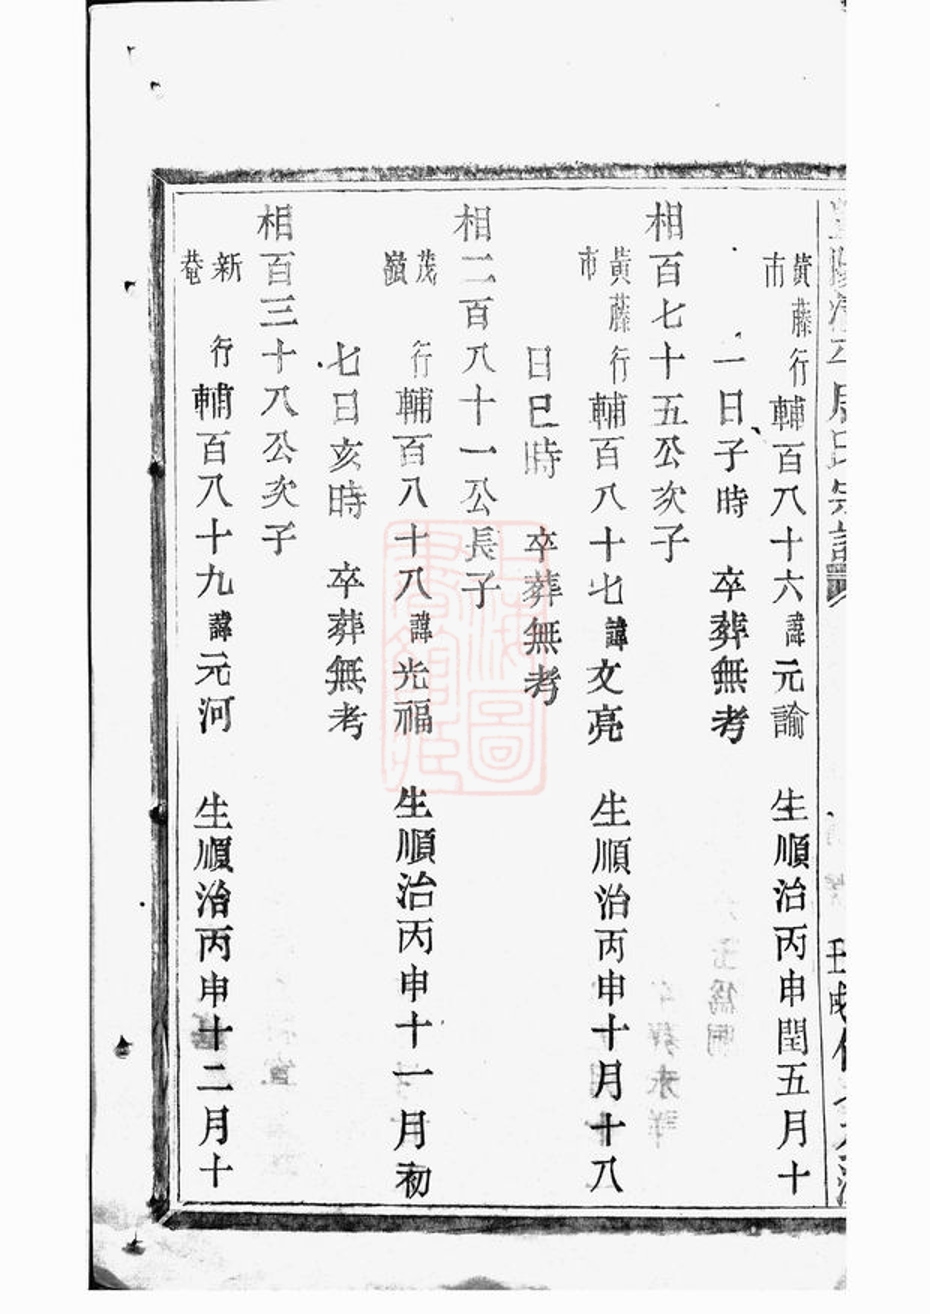 黃藤市 行輔百八十六 諱元諭 生順治丙申閏五月十
一日子時 卒葬無考
相百七十五公次子
黃藤市 行輔百八十七 諱文亮 生順治丙申十月十八
日巳時 卒葬無考
相二百八十一公長子
茂嶺 行輔百八十八 諱光福 生順治丙申十一月初
七日亥時 卒葬無考
相百三十八公次子
新菴 行輔百八十九 諱元河 生順治丙申十二月十
上海圖書館藏